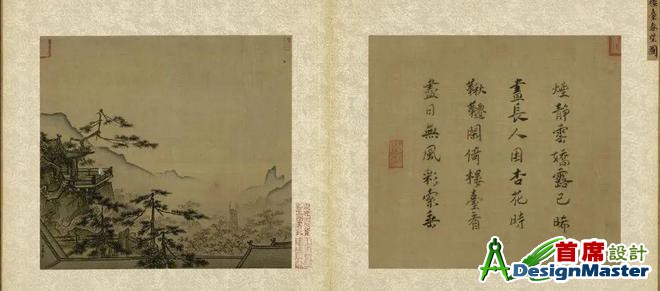 樓臺春望圖
煙靜雲嬌露已晞
晝長人困杏花時
鞦韆閑倚樓臺看
盡日無風彩索垂
首席設計
DesignMaster